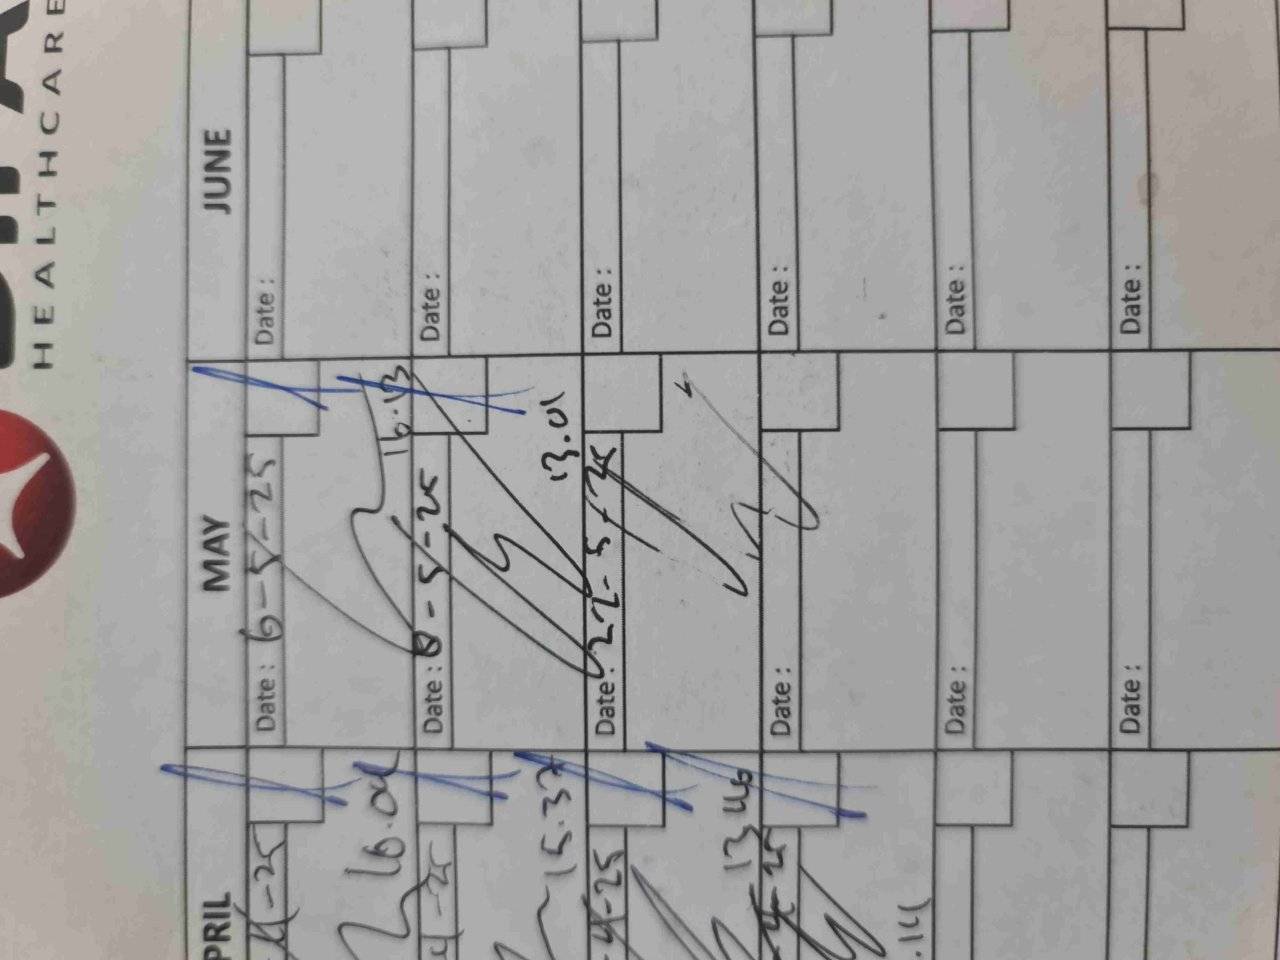 HEALTHCARE
PRIL MAY JUNE
-25 Date : 6-5-25 Date :
16.01 16.13
-25 Date : 8-5-25 Date :
15.37 13.01
-4-25 Date : 22-5-25 Date :
13
-4-25 Date : Date :
.14
Date : Date :
Date : Date :